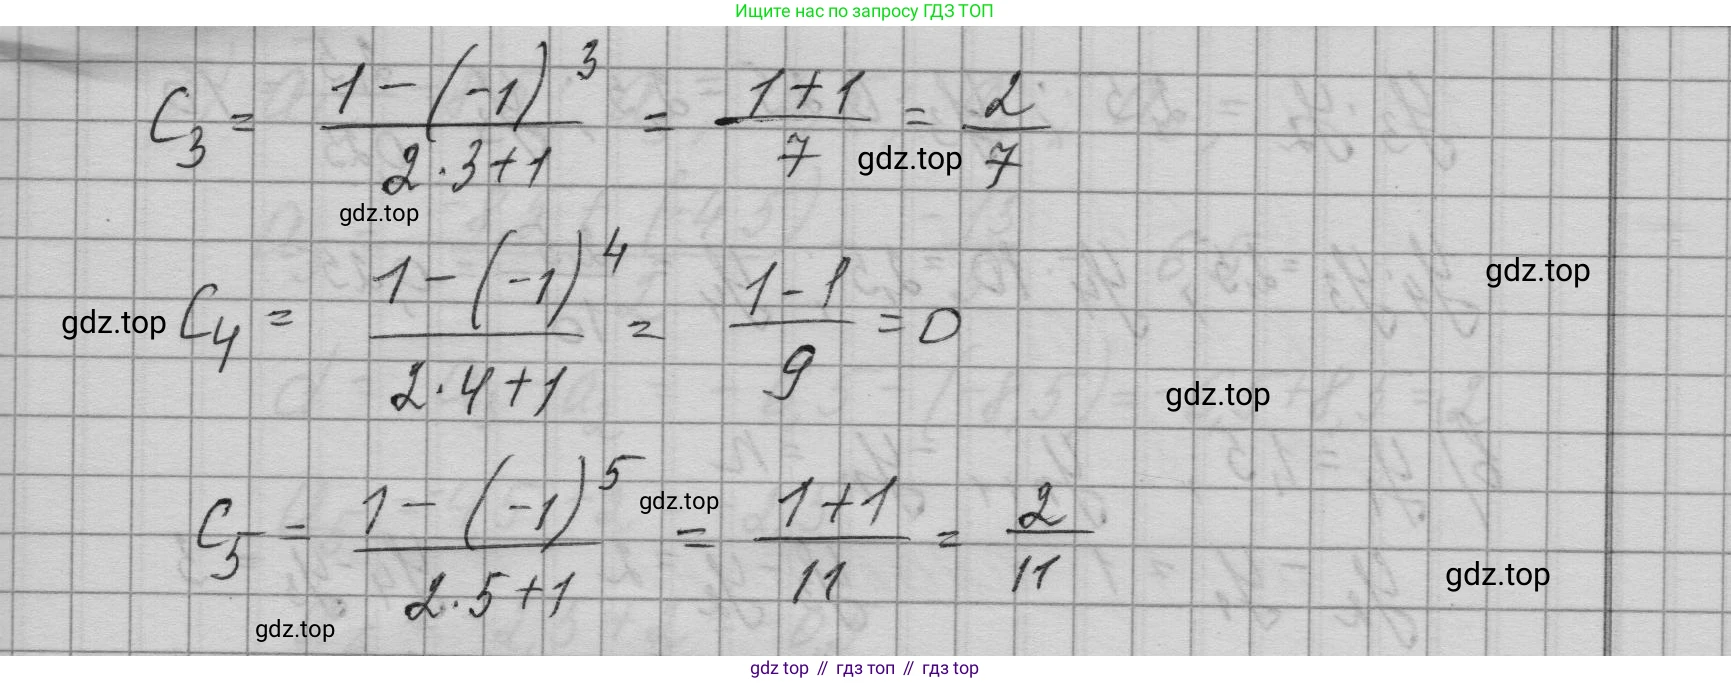 Ищите нас по запросу ГДЗ ТОП
C₃ = (1 - (-1)³)/(2·3+1) = (1+1)/7 = 2/7
gdz.top
gdz.top
C₄ = (1 - (-1)⁴)/(2·4+1) = (1-1)/9 = 0
gdz.top
gdz.top
gdz.top
C₅ = (1 - (-1)⁵)/(2·5+1) = (1+1)/11 = 2/11
gdz.top
gdz.top
gdz.top
gdz top // гдз топ // гдз top